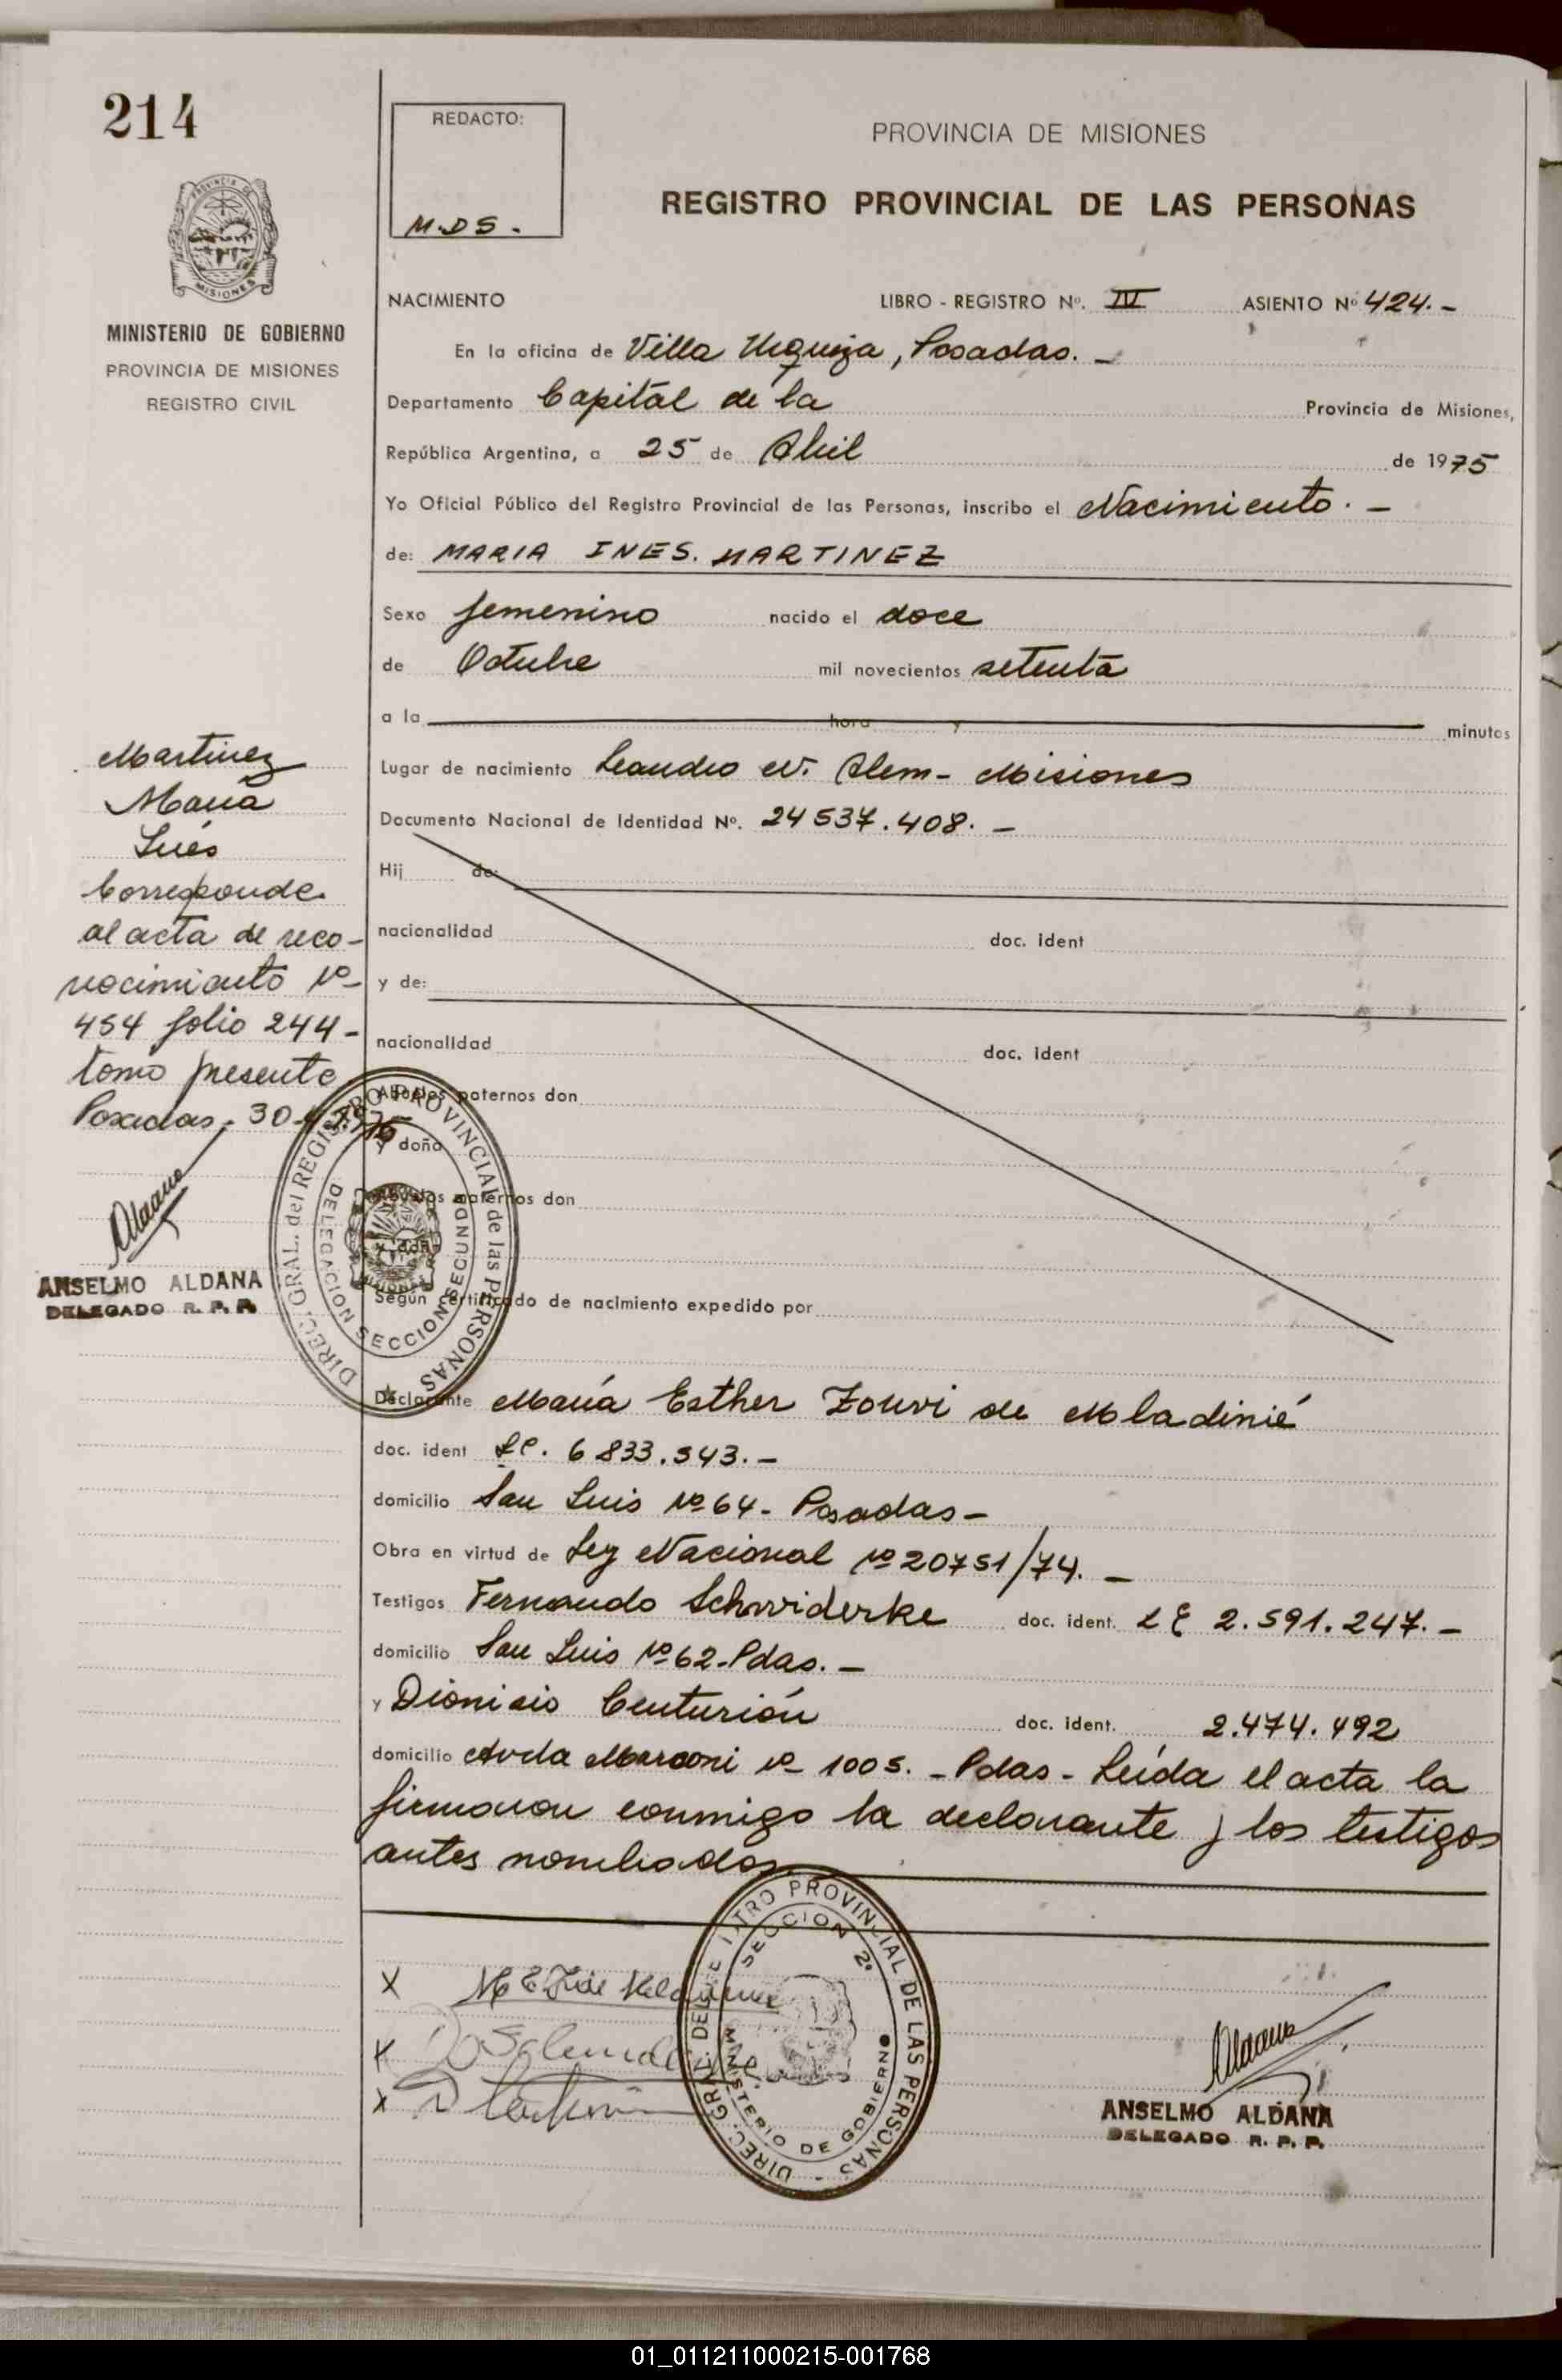 214
REDACTO:
M.D.S.-
PROVINCIA DE MISIONES
REGISTRO PROVINCIAL DE LAS PERSONAS
MISIONES
MINISTERIO DE GOBIERNO
PROVINCIA DE MISIONES
REGISTRO CIVIL
NACIMIENTO LIBRO - REGISTRO Nº. IV ASIENTO Nº 424.-
En la oficina de Villa Urquiza, Posadas.-
Departamento Capital de la Provincia de Misiones,
República Argentina, a 25 de Abril de 1975
Yo Oficial Público del Registro Provincial de las Personas, inscribo el Nacimiento.-
de: MARIA INES. MARTINEZ
Sexo femenino nacido el doce
de Octubre mil novecientos setenta
a la hora y minutos
Lugar de nacimiento Leandro N. Alem - Misiones
Documento Nacional de Identidad Nº. 24537.408.-
Hij de:
nacionalidad doc. ident
y de:
nacionalidad doc. ident
Abuelos paternos don
y doña
Abuelos maternos don
y doña
Según certificado de nacimiento expedido por
Martinez
María
Inés
Corresponde
al acta de reco-
nocimiento Nº
454 folio 244-
tomo presente
Posadas, 30
ANSELMO ALDANA
DELEGADO R. P. P.
DIREC. GRAL. del REGISTRO PROVINCIAL de las PERSONAS
DELEGACION SECCION SEGUNDA
Declarante María Esther Zouvi de Mladinié
doc. ident LC. 6833.343.-
domicilio San Luis Nº 64- Posadas-
Obra en virtud de Ley Nacional Nº 20751/74.-
Testigos Fernando Schwiderke doc. ident. LE 2.591.247.-
domicilio San Luis Nº 62-Pdas.-
y Dionisio Centurión doc. ident. 2.474.492
domicilio Avda Marconi Nº 1005.-Pdas- Leída el acta la
firmaron conmigo la declarante y los testigos
antes nombrados.
DIREC. GRAL. DEL REGISTRO PROVINCIAL DE LAS PERSONAS
SECCION 2ª
MINISTERIO DE GOBIERNO
X
X
X
Aldana
ANSELMO ALDANA
DELEGADO R. P. P.
01_011211000215-001768